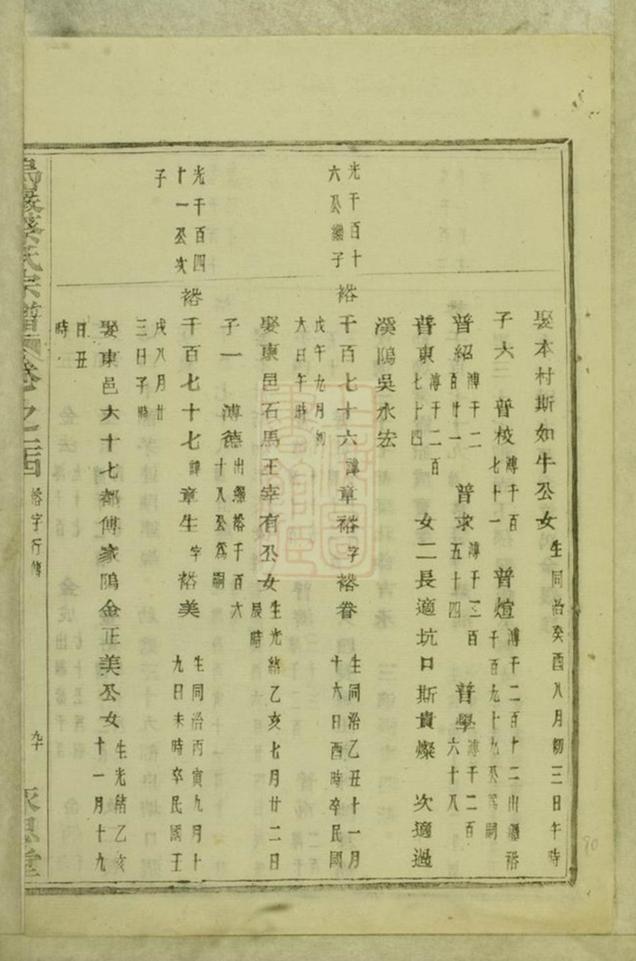 娶本村斯如牛公女生同治癸酉八月初三日午時
子六 普校溥千百七十一 普煊溥千二百十二出繼裕千百九十九公爲嗣
普紹溥千二百廿一 普求溥千三百五十四 普學溥千二百六十八
普東溥千二百七十四 女二長適坑口斯貴燦 次適過
溪隝吳永宏
光千百十六公繼子
裕千百七十六諱章裕字裕眷生同治乙丑十一月十六日酉時卒民國
戊午九月初六日午時
娶東邑石馬王宰有公女生光緒乙亥七月廿二日辰時
子一 溥德出繼裕千百六十八公爲嗣
光千百四十一公次子
裕千百七十七諱章生字裕美生同治丙寅九月十九日未時卒民國壬
戌八月廿三日子時
娶東邑大十七都傅家隝金正美公女生光緒乙亥十一月十九
日丑時
蔡氏宗譜卷之 裕字行傳 九十 永思堂
90